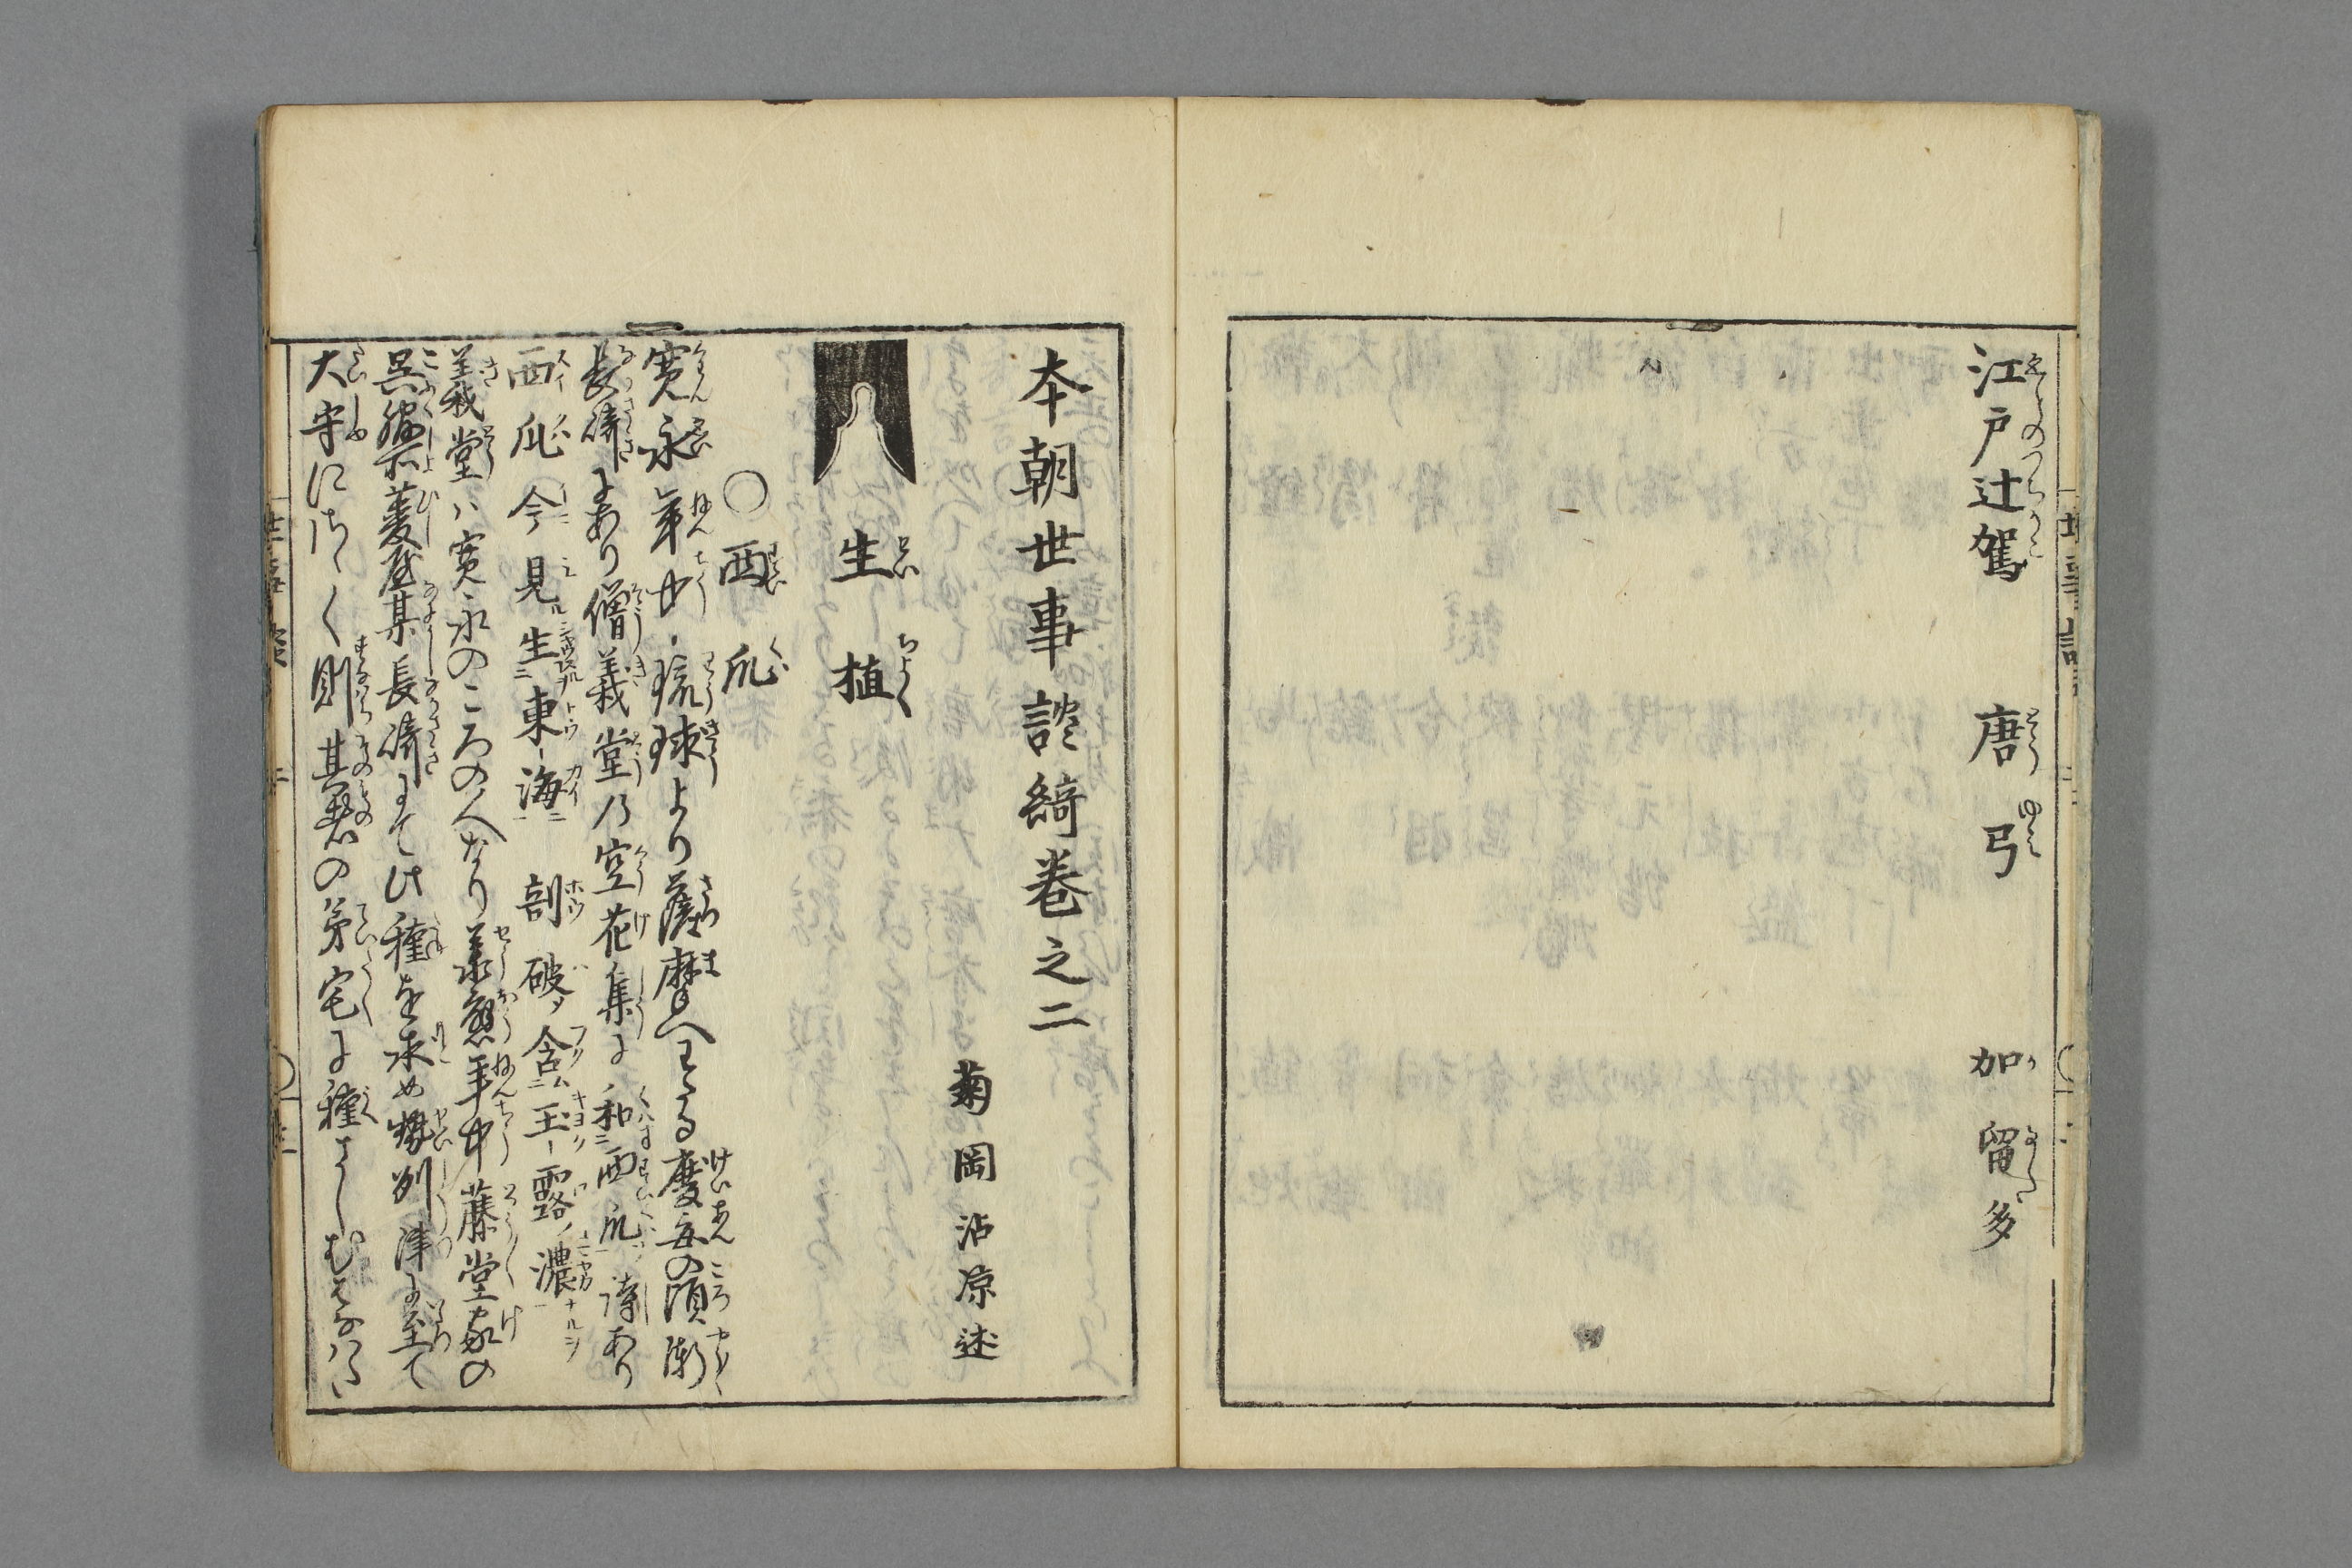 江戸辻駕　唐弓　加留多
本朝世事談綺巻之二
菊岡沾凉述
生植
〇西瓜
寛永年中琉球より薩摩へわたる慶安の頃漸
長崎にあり僧義堂乃空花集に和西瓜詩あり
西瓜今見生東海剖破含玉露濃
義堂ハ寛永のころの人なり承應年中藤堂家の
呉服所菱屋某長崎にて此種を求め勢州津に至て
大守にさゝく則其君の第宅に種さしむ